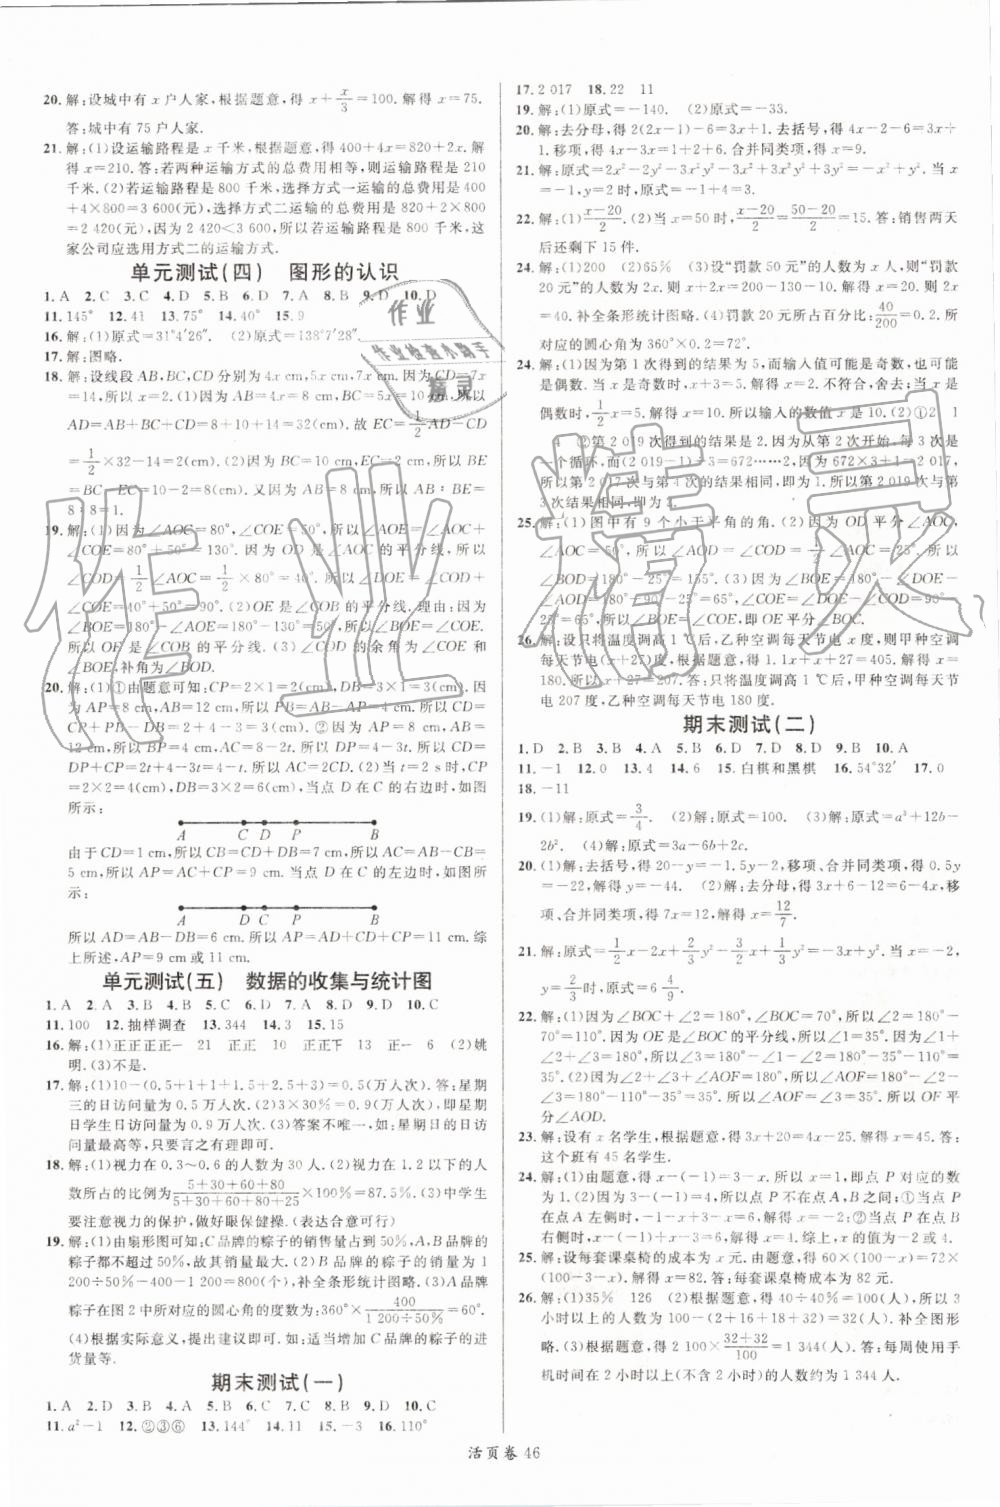 20. 解:设城中有 x 户人家,根据题意,得 x+x/3=100. 解得 x=75.
答:城中有 75 户人家.
21. 解:(1)设运输路程是 x 千米,根据题意得 400+4x=820+2x. 解
得 x=210. 答:若两种运输方式的总费用相等,则运输路程是 210
千米. (2)若运输路程是 800 千米,选择方式一运输的总费用是
400+4×800=3 600(元),选择方式二运输的总费用是 820+2×800
=2 420(元),因为 2 420<3 600,所以若运输路程是 800 千米,这
家公司应选用方式二的运输方式.
单元测试(四) 图形的认识
1. A 2. C 3. C 4. D 5. B 6. D 7. A 8. B 9. D 10. D
11. 145° 12. 41 13. 75° 14. 40° 15. 9
16. 解:(1)原式=31°4′26″. (2)原式=138°7′28″.
17. 解:图略.
18. 解:设线段 AB,BC,CD 分别为 4x cm,5x cm,7x cm. 因为 CD=7x
=14,所以 x=2. (1)因为 AB=4x=8 cm,BC=5x=10 cm,所以
AD=AB+BC+CD=8+10+14=32(cm). 故 EC=1/2 AD-CD
=1/2×32-14=2(cm). (2)因为 BC=10 cm,EC=2 cm,所以 BE
=BC-EC=10-2=8(cm). 又因为 AB=8 cm,所以 AB:BE=
8:8=1.
19. 解:(1)因为∠AOC=80°,∠COE=50°,所以∠AOE=∠AOC+
∠COE=80°+50°=130°. 因为 OD 是∠AOC 的平分线,所以
∠COD=∠AOD=1/2∠AOC=1/2×80°=40°,所以∠DOE=∠COD+
∠COE=40°+50°=90°. (2)OE 是∠COB 的平分线. 理由:因为
∠BOE=180°-∠AOE=180°-130°=50°,所以∠BOE=∠COE.
所以 OE 是∠COB 的平分线. (3)∠COE 的余角为∠COD,
∠AOD,∠BOE,补角为∠BOD.
20. 解:(1)①由题意可知:CP=2×1=2(cm),DB=3×1=3(cm). 因为
AP=8 cm,AB=12 cm,所以 PB=AB-AP=4 cm. 所以 CD=
CP+PB-DB=2+4-3=3(cm). ②因为 AP=8 cm,AB=12 cm,
所以 BP=4 cm,AC=8-2t. 所以 DP=4-3t. 所以 CD=DP+CP=
2t+4-3t=4-t. 所以 AC=2CD. (2)当 t=2 s 时,
CP=2×2=4(cm),DB=3×2=6(cm),当点 D 在 C 的右边时,如图
所示:
A C D P B
由于 CD=1 cm,所以 CB=CD+DB=7 cm,所以 AC=AB-CB=
5 cm,所以 AP=AC+CP=9 cm. 当点 D 在 C 的左边时,如图
所示:
A D C P B
所以 AD=AB-DB=6 cm. 所以 AP=AD+CD+CP=11 cm. 综
上所述,AP=9 cm 或 11 cm.
单元测试(五) 数据的收集与统计图
1. A 2. A 3. B 4. C 5. C 6. D 7. A 8. D 9. D 10. C
11. 100 12. 抽样调查 13. 344 14. 3 15. 15
16. 解:(1)正正正正一 21 正正 10 正正下 13 正一 6 (2)姚
明. (3)不是.
17. 解:(1)10-(0.5+1+1+1.5+2.5+3)=0.5(万人次). 答:星期
三的日访问量为 0.5 万人次. (2)3×30%=0.9(万人次),即星期
日学生日访问量为 0.9 万人次. (3)答案不唯一,如:星期日的日访
问量最高等,只要言之有理即可.
18. 解:(1)视力在 0.3~0.6 的人数为 30 人. (2)视力在 1.2 以下的人
数所占的比例为 (5+30+60+80)/(5+30+60+80+25)×100%=87.5%. (3)中学生
要注意视力的保护,做好眼保健操. (表达合意可)
19. 解:(1)由扇形图可知:C 品牌的粽子的销售量占到 50%,A,B 品牌的
粽子都不超过 50%,故其销量最大. (2)B 品牌的粽子的销量为:1
200÷50%-400-1 200=800(个),补全条形统计图略. (3)A 品牌
粽子在图 2 中所对应的圆心角的度数为:360°×400/(1 200÷50%)=60°.
(4)根据实际意义,提出建议即可. 如:适当增加 C 品牌的粽子的进
货量等.
期末测试(一)
1. A 2. C 3. D 4. B 5. C 6. B 7. D 8. C 9. D 10. C
11. a²-1 12. ②③⑥ 13. 944 14. 11 15. -3 16. 110°
17. 2 017 18. 22 11
19. 解:(1)原式=-140. (2)原式=-33.
20. 解:去分母,得 2(2x-1)-6=3x+1. 去括号,得 4x-2-6=3x+
1. 移项,得 4x-3x=1+2+6. 合并同类项,得 x=9.
21. 解:原式=2x²-2y²-3x²y²-3x²+3x²y²+3y²=-x²+y². 当 x
=-1,y=2 时,原式=-1+4=3.
22. 解:(1)(x-20)/2. (2)当 x=50 时,(x-20)/2=(50-20)/2=15. 答:销售两天
后还剩下 15 件.
24. 解:(1)200 (2)65% (3)设“罚款 50 元”的人数为 x 人,则“罚款
20 元”的人数为 2x 人. 根据题意,得 x+2x+10+130=200. 解得 2x
=40. 补全条形统计图略. (4)罚款 20 元所占百分比:40/200=0.2,所
对应的圆心角为 360°×0.2=72°.
24. 解:(1)因为第 1 次得到的结果为 5,而输入值可能是奇数,也可能
是偶数. 当 x 是奇数时,x+3=5. 解得 x=2. 不符合,舍去;当 x 是
偶数时,1/2 x=5. 解得 x=10. 所以输入的数值 x 是 10. (2)①2 1
4 ②第 2 019 次得到的结果是 2. 因为从第 2 次开始,每 3 次是一
个循环,而 (2 019-1)÷3=672……2,因为 672×3+1=2 017,
所以第 2 017 次与第 1 次的结果相同,即为 1. 所以第 2 019 次与第
3 次结果相同,即为 2.
25. 解:(1)图中有 9 个小于平角的角. (2)因为 OD 平分∠AOC,
∠AOC=50°,所以∠AOD=∠COD=1/2∠AOC=25°. 所以
∠BOD=180°-25°=155°. (3)因为∠BOE=180°-∠DOE-
∠AOD=180°-90°-25°=65°,∠COE=∠DOE-∠COD=90°-
25°=65°,所以∠BOE=∠COE,即 OE 平分∠BOC.
26. 解:设只将温度调高 1 ℃后,乙种空调每天节电 x 度,则甲种空调
每天节电(x+27)度. 根据题意,得 1.1x+x+27=405. 解得 x=
180. 所以 x+27=207. 答:只将温度调高 1 ℃后,甲种空调每天节
电 207 度,乙种空调每天节电 180 度.
期末测试(二)
1. D 2. B 3. B 4. A 5. B 6. B 7. D 8. D 9. B 10. A
11. -1 12. 0 13. 4 14. 6 15. 白棋和黑棋 16. 54°32′ 17. 0
18. -11
19. (1)解:原式=3/4. (2)解:原式=0. (3)解:原式=a³+12b-
2b². (4)解:原式=3a-6b+2c.
20. (1)解:去括号,得 20-y=-1.5y-2,移项、合并同类项,得 0.5y
=-22,解得 y=-44. (2)解:去分母,得 3x+2=8-4x,移
项、合并同类项,得 7x=12,解得 x=12/7.
21. 解:原式=1/2x-2x+2/3y²-3/2x+1/3y²=-3x+y². 当 x=-2,
y=2/3 时,原式=6 4/9.
22. 解:(1)因为∠BOC+∠2=180°,∠BOC=110°,所以∠2=180°-
110°=70°. 因为 OE 是∠BOC 的平分线,所以∠1=35°. 因为∠1+
∠2+∠3=180°,所以∠3=180°-∠1-∠2=180°-35°-70°=
75°. (2)因为∠2+∠3+∠AOF=180°,所以∠AOF=180°-
∠2-∠3=180°-70°-75°=35°. 所以∠AOF=∠1. 所以 OF 平
分∠AOD.
23. 解:设有 x 名学生,根据题意,得 3x+20=4x-25. 解得 x=45. 答:
这个班有 45 名学生.
24. 解:(1)由题意,得 x-(-1)=3-x. 解得 x=1,即点 P 对应的数
为 1. (2)因为 3-(-1)=4,所以点 P 不在点 A,B 之间:①当点 P
在点 A 左侧时,-1-x+3-x=6. 解得 x=-2;②当点 P 在点 B
右侧时,x-(-1)+x-3=6. 解得 x=4. 综上,x 的值为-2 或 4.
25. 解:设每套课桌椅的成本为 x 元. 由题意,得 60×(100-x)=72×
(100-3-x). 解得 x=82. 答:每套课桌椅成本为 82 元.
26. 解:(1)35% 126 (2)根据题意,得 40÷40%=100(人),所以 3
小时以上的人数为 100-(2+16+18+32)=32(人). 补全图形
略. (3)根据题意,得 2 100×(32+32)/100=1 344(人). 答:每周使用手
机时间在 2 小时以上(不含 2 小时)的人数约为 1 344 人.
活页卷 46
作业
作业检查小助手
精灵
作业精灵